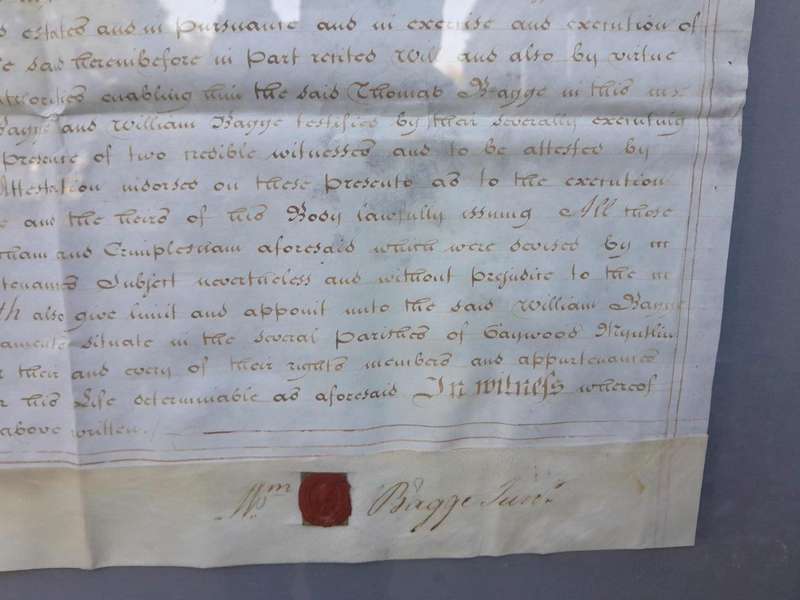 estates and in pursuance and in exercise and execution of
said hereinbefore in part recited Will and also by virtue
authorities enabling him the said Thomas Bagge in this
Bagge and William Bagge testified by their severally executing
presence of two credible witnesses and to be attested by
Attestation indorsed on these presents as to the execution
and the heirs of his Body lawfully issuing All those
and Crimplesham aforesaid which were devised by
Subject nevertheless and without prejudice to the
also give limit and appoint unto the said William Bagge
situate in the several Parishes of Gaywood
their and every of their rights members and appurtenances
his Life determinable as aforesaid In witness whereof
above written.
Wm Bagge Junr